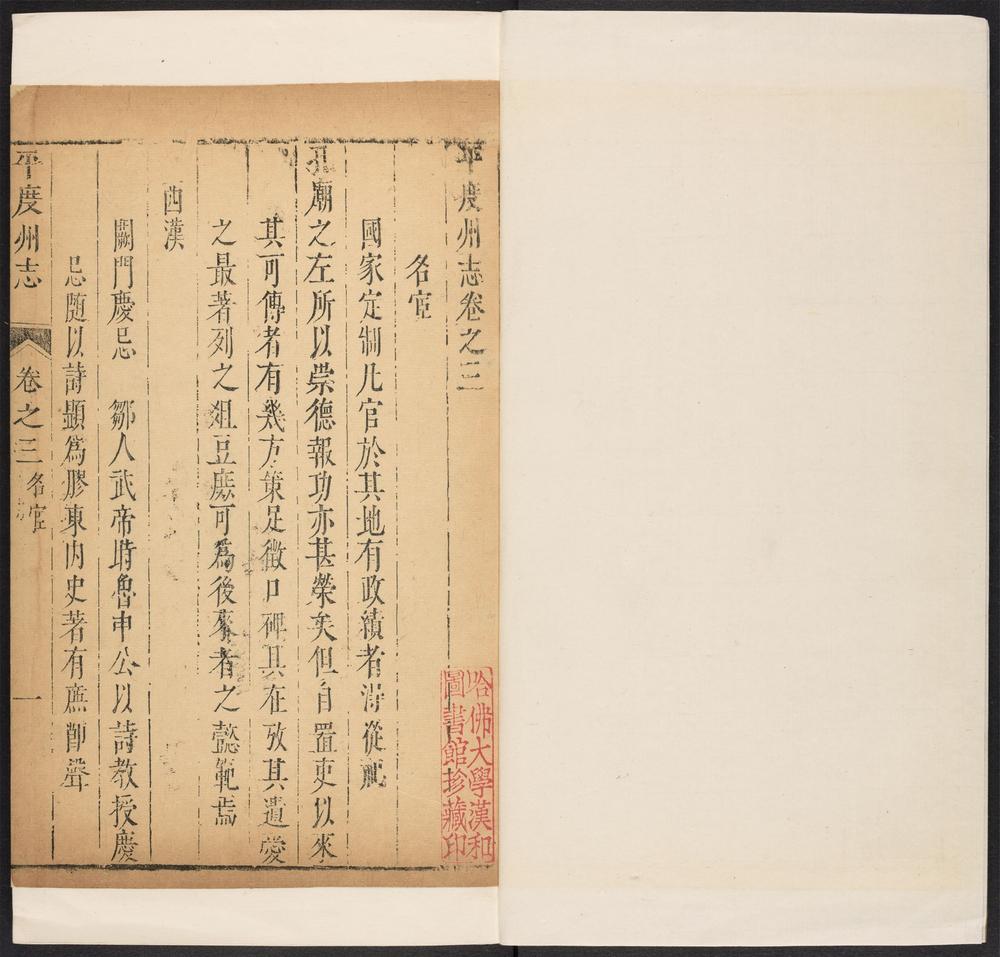 平度州志卷之三
名宦
國家定制凡官於其地有政績者得從祀
孔廟之左所以崇德報功亦甚榮矣但自置吏以來
其可傳者有幾方策足徵口碑具在攷其遺愛
之最著列之俎豆庶可為後來者之懿範焉
西漢
闕門慶忌 鄒人武帝時魯申公以詩教授慶
忌随以詩顯爲膠東內史著有廉節聲
平度州志 卷之三 名宦 一
哈佛大學漢和
圖書館珍藏印